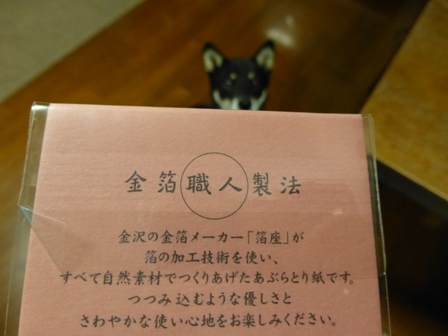 金箔職人製法
金沢の金箔メーカー「箔座」が
箔の加工技術を使い、
すべて自然素材でつくりあげたあぶらとり紙です。
つつみ込むような優しさと
さわやかな使い心地をお楽しみください。